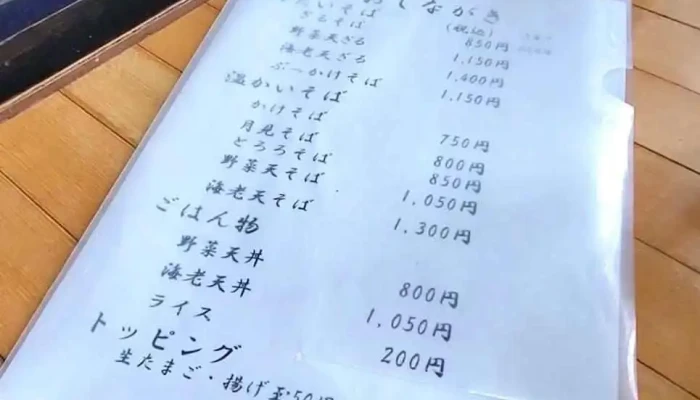 おしながき
(税込)
たいそば
ざるそば 850円
野菜天ざる 1,150円
海老天ざる 1,400円
ぶっかけそば 1,150円
温かいそば
かけそば 750円
月見そば 800円
とろろそば 850円
野菜天そば 1,050円
海老天そば 1,300円
ごはん物
野菜天丼 800円
海老天丼 1,050円
ライス 200円
トッピング
生たまご・揚げ玉50円